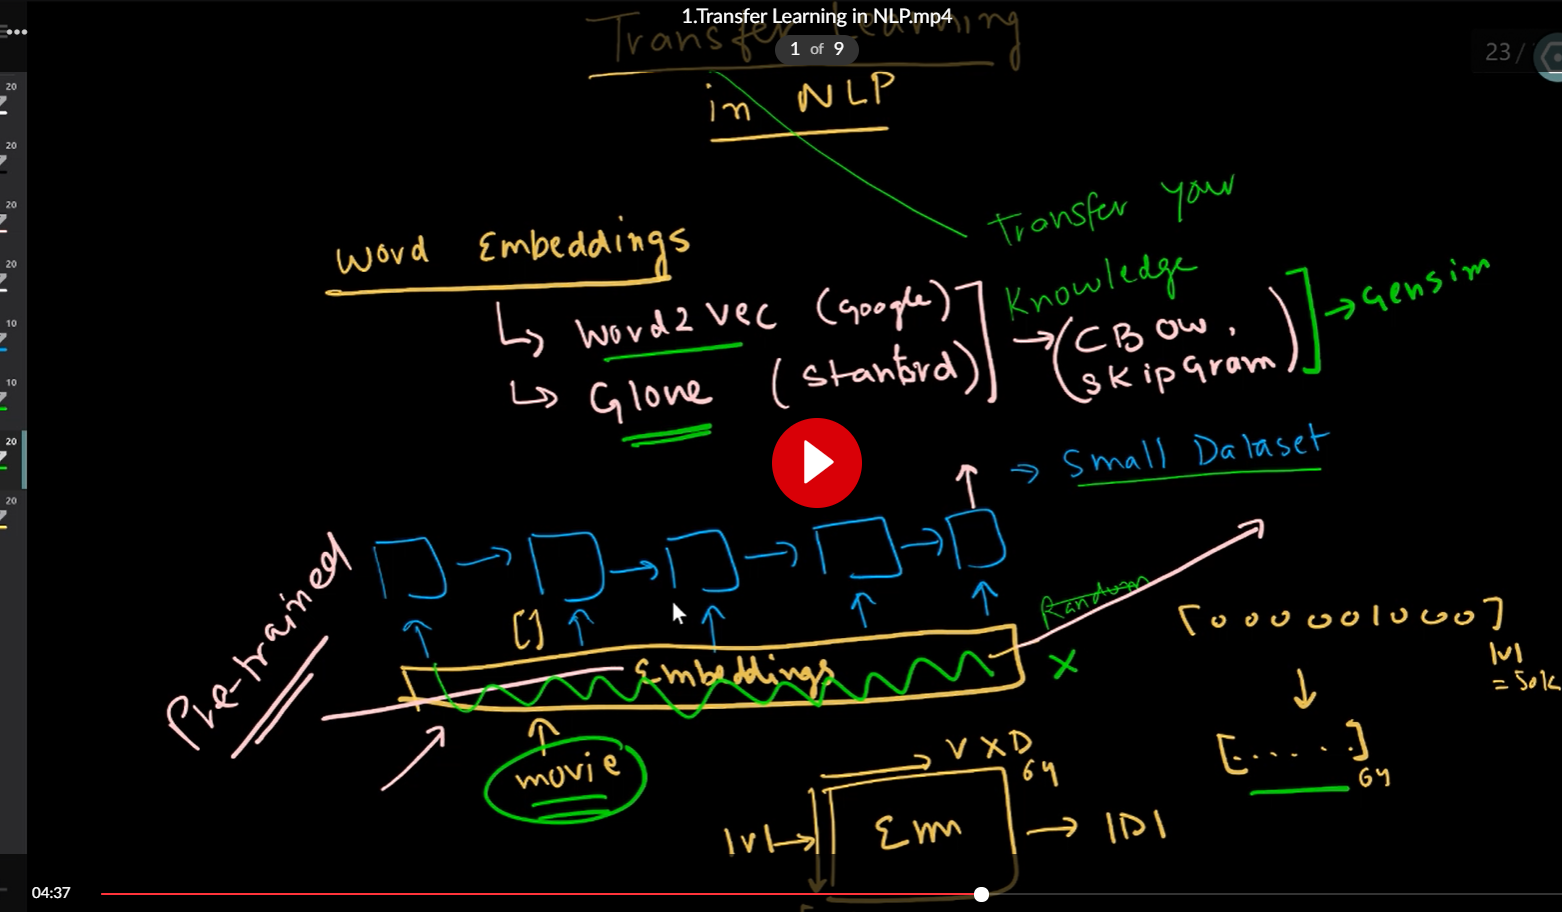 1.Transfer Learning in NLP.mp4
1 of 9
23 /
Transfer Learning
in NLP
Transfer your
Knowledge
Word Embeddings
Word2Vec (Google)
Glove (Stanford)
(CBOW,
SkipGram)
→ Gensim
→ Small Dataset
Pre-trained
[]
Random
Embeddings
X
movie
[0 0 0 0 0 0 1 0 0 0]
|V|
= 50K
[.....]
64
V X D
64
|V| →
Em
→ |D|
20
20
20
20
10
10
20
20
04:37